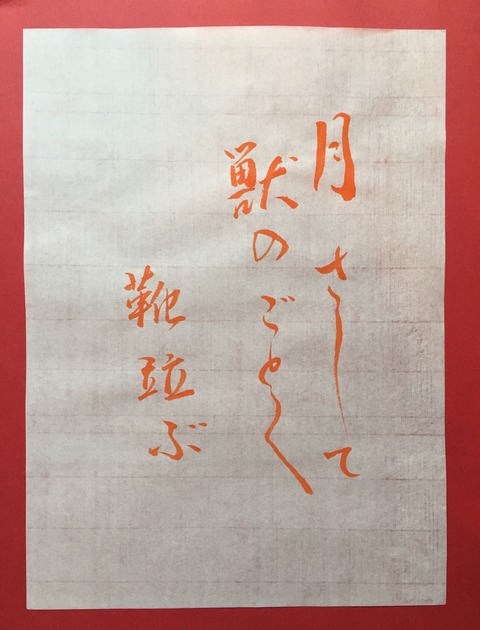 月さして
獣のごとく
靴並ぶ